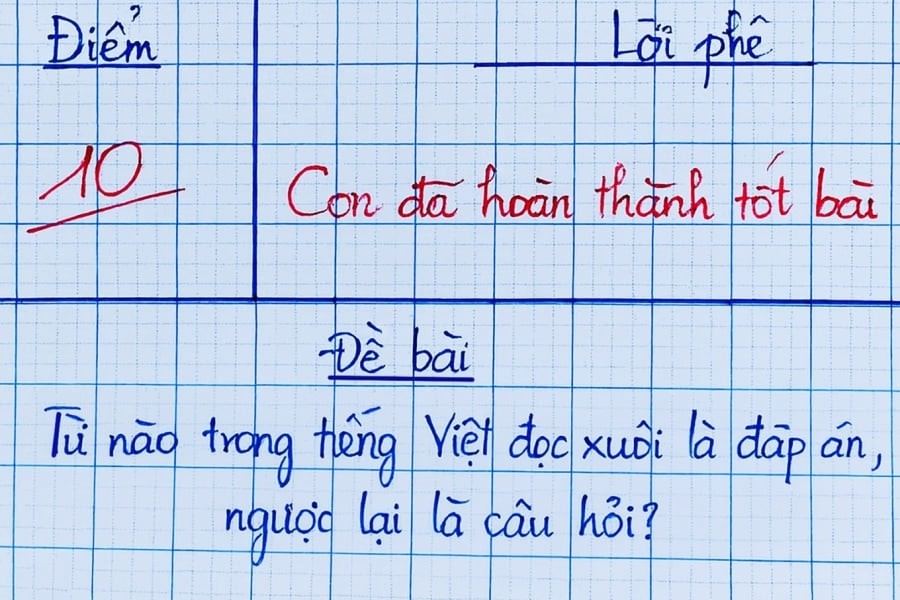 Điểm
Lời phê
10
Con đã hoàn thành tốt bài
Đề bài
Từ nào trong tiếng Việt đọc xuôi là đáp án,
ngược lại là câu hỏi?